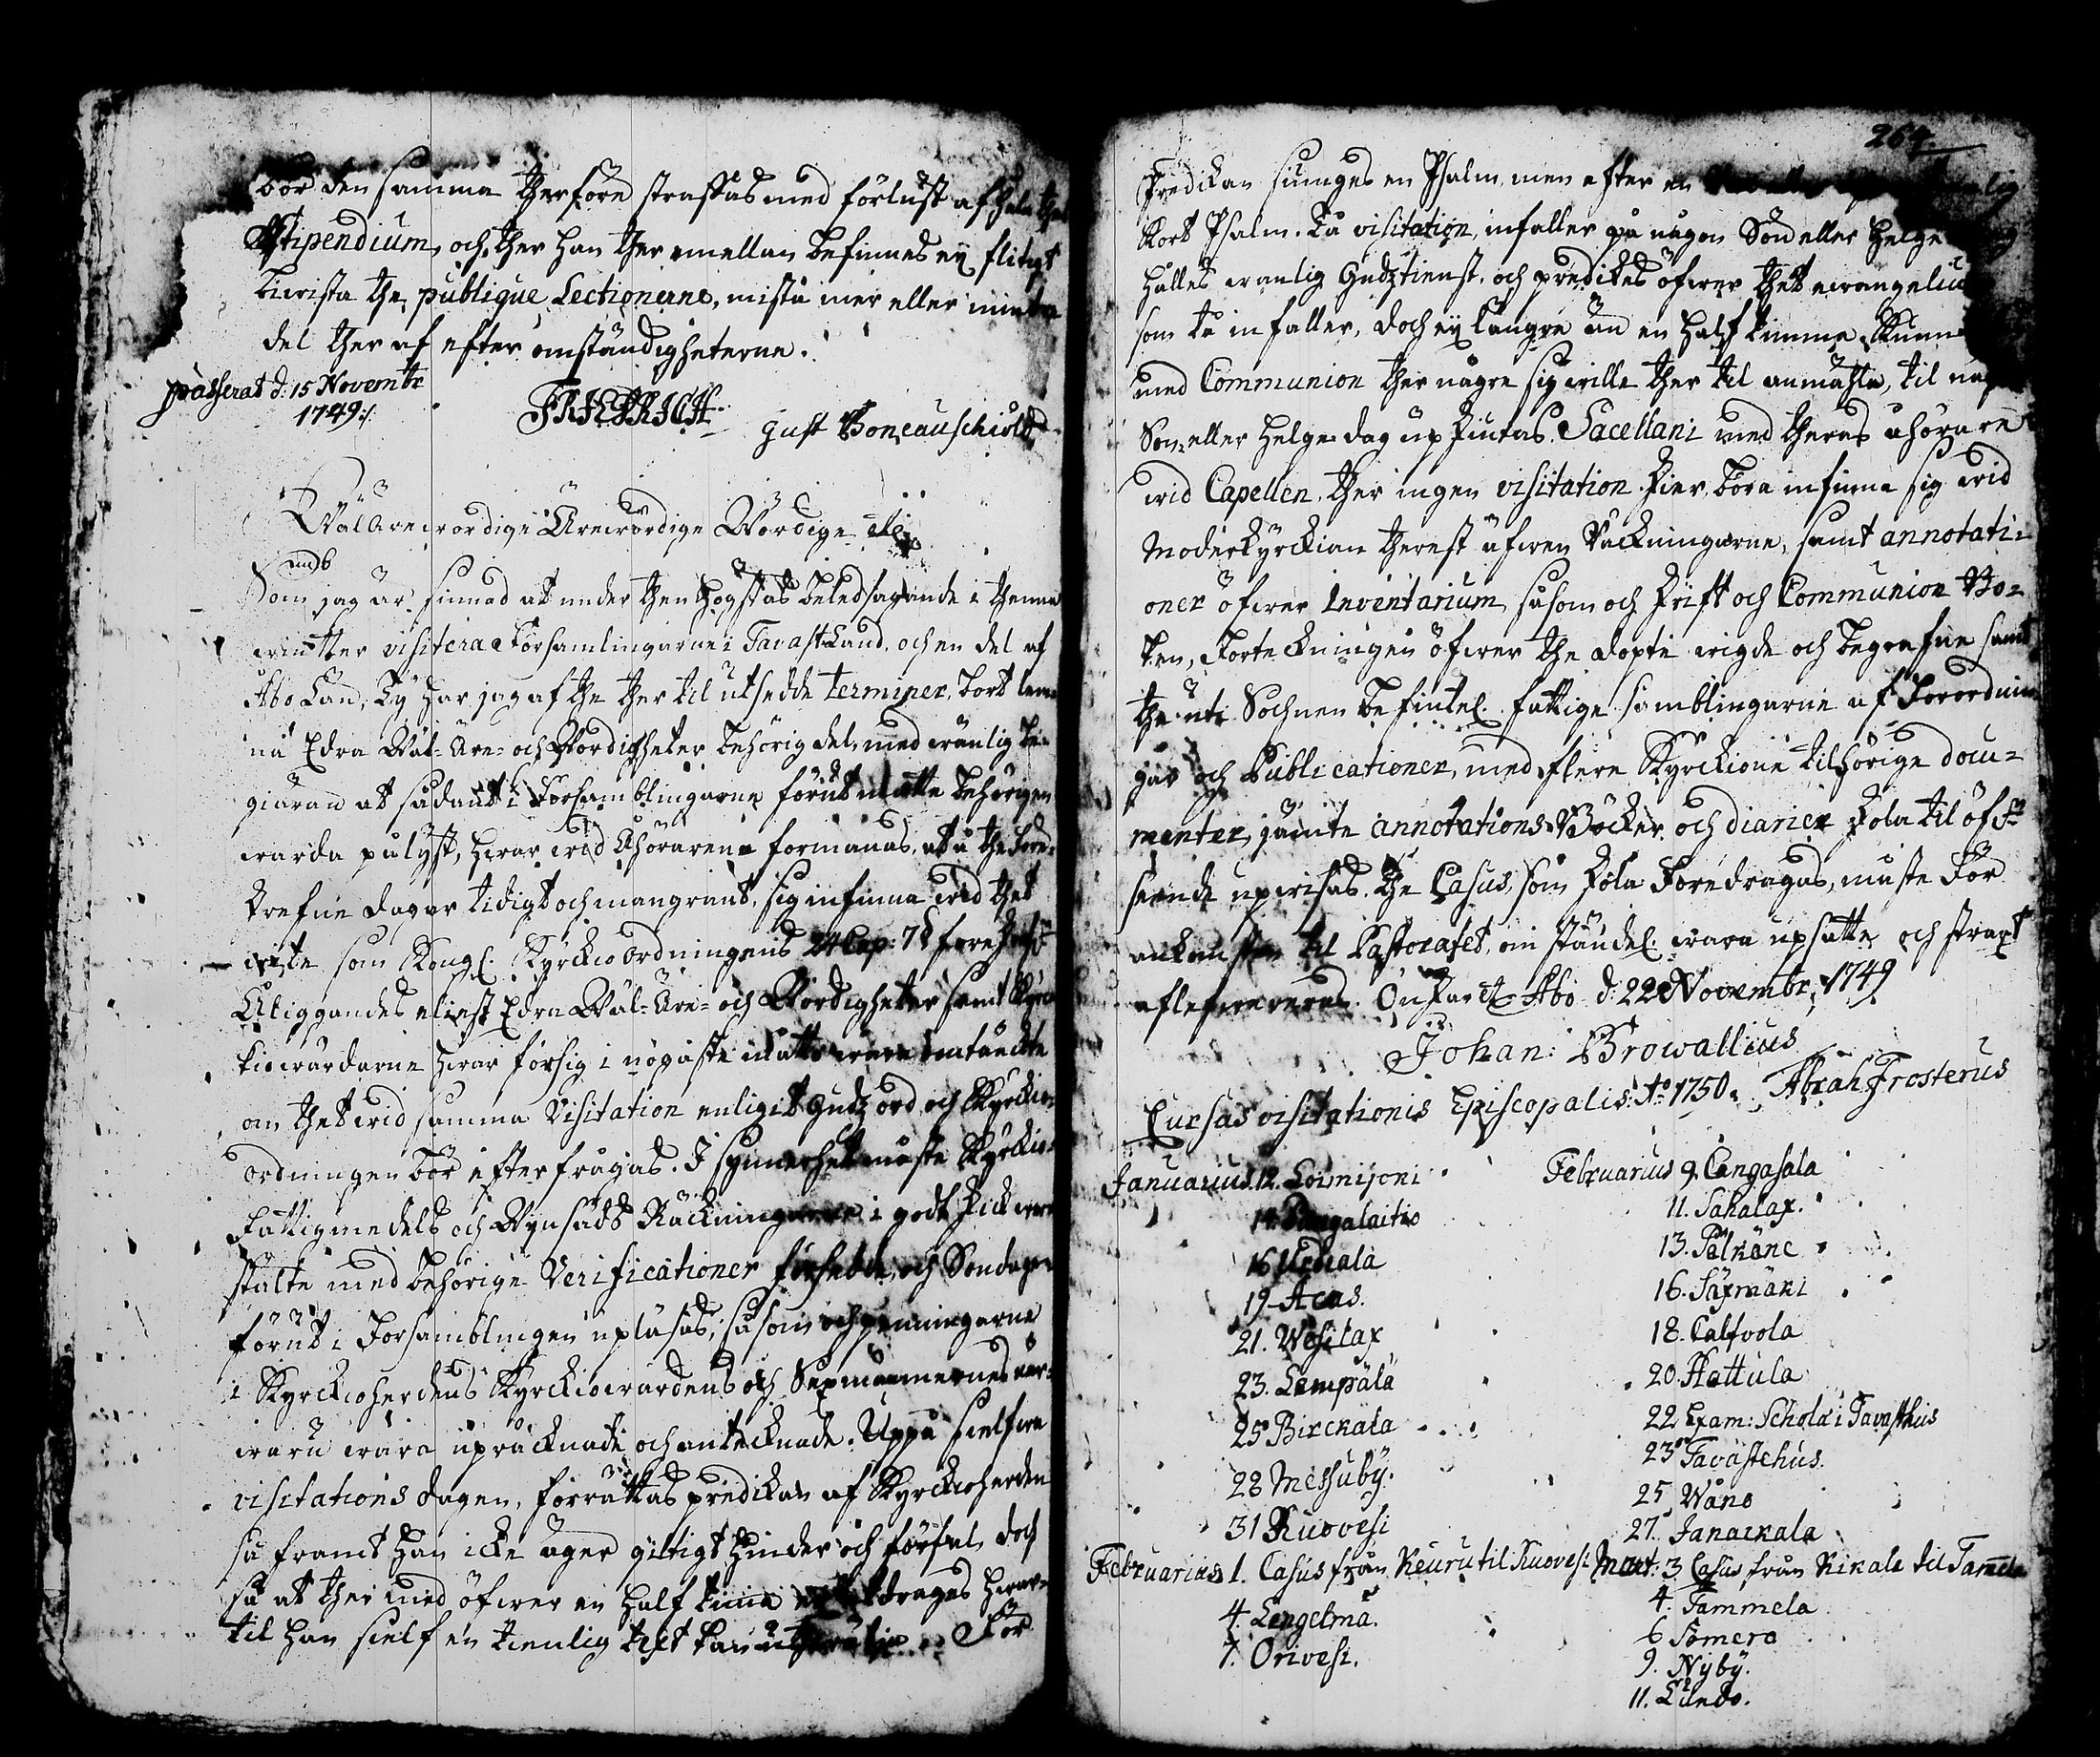 bör den samma therföre straffas med förlust af hela thes
Stipendium, och ther han ther emellan befinnes ey flitigt
bivista the publique Lectionerne, mista mer eller mindre
del ther af efter omständigheterne.
passerat d. 15 Novembr
1749:/.
FRIEDRICH
Gust Boneauschiöld
Wälärewördige Ärewördige Wördige
Som jag är sinnad at under then Högstas beledsagande i thenna
winter visitera Församlingarne i TavastLand, och en del af
Åbo Län, Ty har jag af the ther til utsedde terminer, bort lem
na Edra Wäl-Äre- och Wördigheter behörig del, med wänlig be-
giäran at sådant i Församblingarne förut måtte behörigen
warda pulyst, hwar wid Åhörarena förmanas, at å the före-
skrefne dagar tidigt och mangrant, sig infinna wid thet
wite som Kongl. KyrckioOrdningens 24 Cap: 7 § föreskrif
Åliggandes elliest Edra Wäl-Äre- och Wördigheter samt Kyrc
kiowärdarne hwar för sig i nogaste måtto wara omtänckte
om thet wid samma Visitation enligit Gudz ord och Kyrckio-
ordningen bör efterfrågas. I synnerhet måste Kyrckio-
Fattigmedels och Wynsäds Räckningarne i godt skick wara
stälte med behörige Verificationer försedde, och Söndagen
förut i Församblingen upläsas; såsom och penningarne
i Kyrckioherdens Kyrckiowärdens och Sexmännernes när-
waru wara upräcknade och antecknade. Uppå sielfwa
visitations dagen, förrättas predikan af Kyrckioherden
så framt han icke äger giltigt hinder och förfal, doch
så at ther med öfwer en half timma ey utdrages hwar-
til han sielf en tienlig text kan För
264.
Predikan siunges en Psalm, men efter en
kort Psalm. Då visitation infaller på någon Sön eller Helge
hålles wanlig Gudztienst, och predikas öfwer thet evangeliu
som då infaller, doch ey längre än en half timma. Kunna
med Communion ther någre sig wille ther til anmähla, til nå
Sön eller Helgedag upskiutas. Sacellani med theras åhörare
wid Capellen, ther ingen visitation sker, böra infinna sig wid
Moderkyrckian therest äfwen Räckningarne, samt annotati-
oner öfwer Inventarium, såsom och Skrift och Communion Bo-
ken, förteckningen öfwer the döpte wigde och begrafne samt
the uti Sochnen befintel. fattige samblingarne af Förordnin
gar och Publicationer, med flere Kyrckione tilhörige docu-
menter, jämte annotations Böcker och diarier skola til öf
seende upwisas. The Casus, som skola föredragas, måste för
ankomsten til Pastoratet, omständel. wara upsatte och straxt
aflefwereras. Önskar et Åbo d: 22 Novembr: 1749
Johan: Browallius
Cursus visitationis Episcopalis A:o 1750. Abrah Frosterus
Januarius 12. Loimijoki
14. Pungalaitio
16 Urdiala
19 Acas.
21. Wesilax
23. Lempälä
25 Birckala
28 Messuby.
31 Ruovesi
Februarius 1. Casus från Keuru til Ruovesi
4. Lengelmä.
7. Orivesi.
Februarius 9. Cangasala
11. Sahalax.
13. Pälkäne
16. Säxmäki
18. Calfvola
20. Hattula
22 Exam: Schola i Tavasthus
23 Tavastehus.
25 Wånå
27. Janackala
Mart: 3 Casus från Kikala til Tammela
4. Tammela
6 Somero
9. Nyby.
11. Lundo.